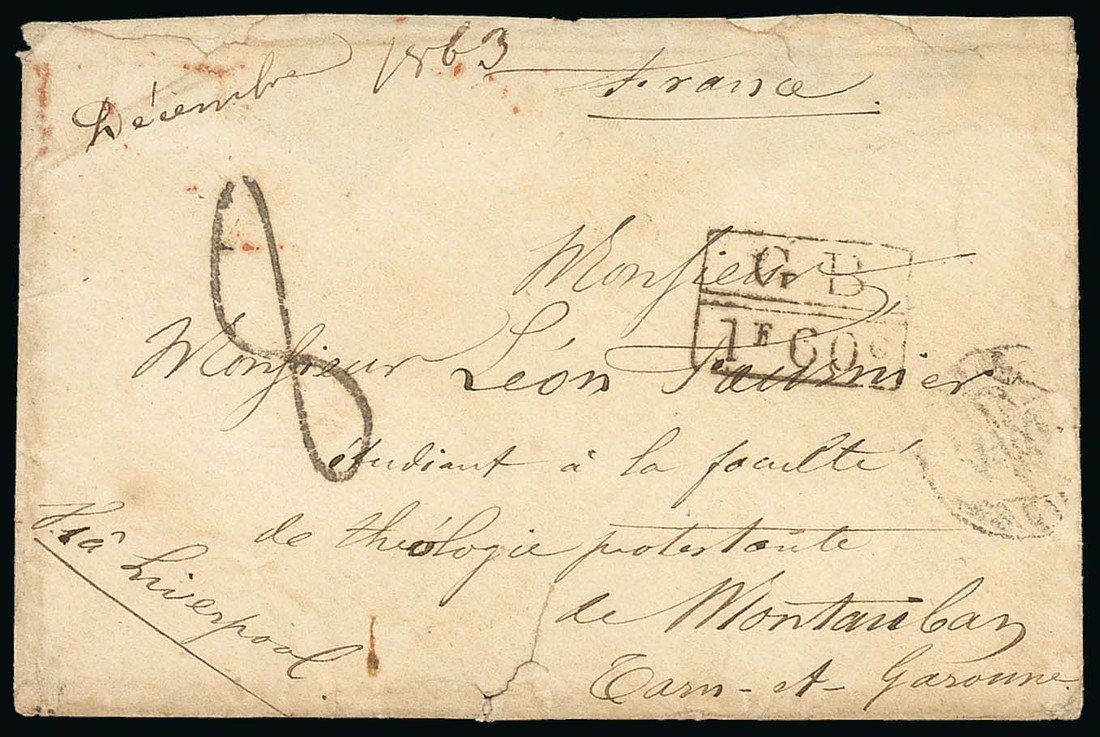 Décembre 1863
France
8
Monsieur
GB
1F60c
Monsieur Léon Fournier
étudiant à la faculté
de théologie protestante
de Montauban
Tarn-et-Garonne
Viâ Liverpool.